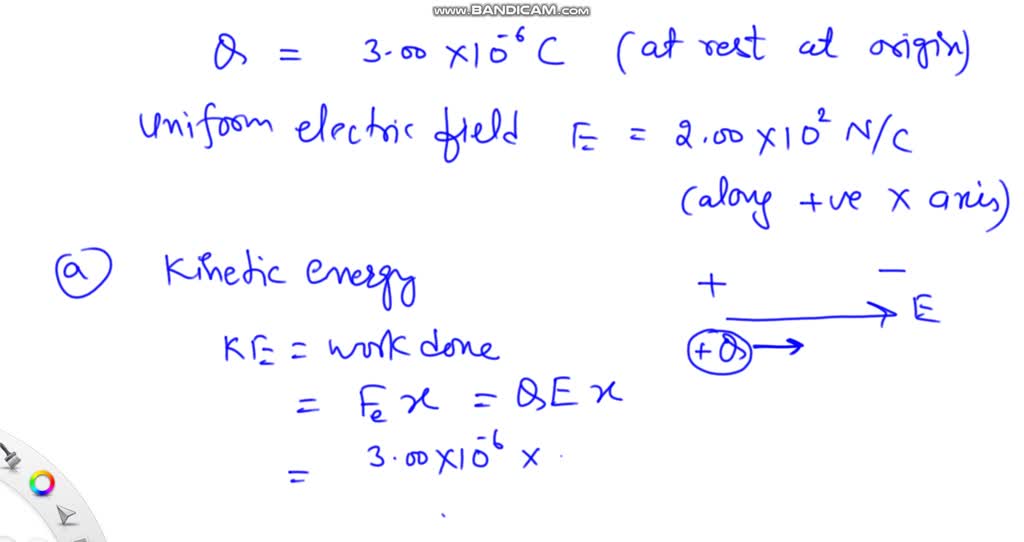 www.BANDICAM.com
Q = 3.00 × 10⁻⁶ C (at rest at origin)
Uniform electric field E = 2.00 × 10² N/C
(along +ve x axis)
(a) Kinetic energy
+ −
E
+Q
KE = work done
= Fₑ x = QE x
= 3.00 × 10⁻⁶ ×